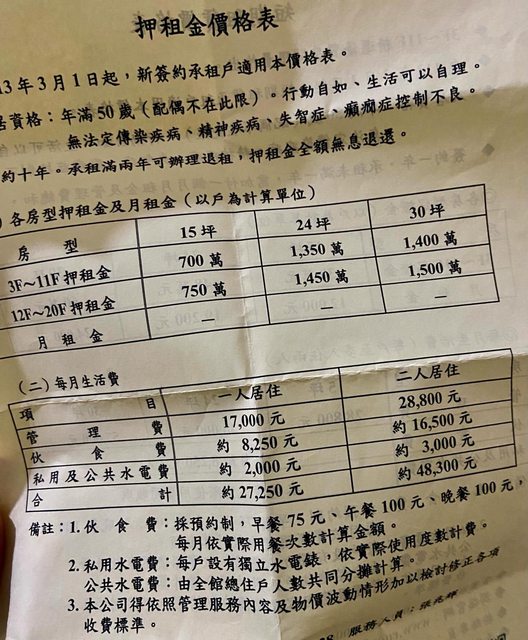 押租金價格表
13年3月1日起，新簽約承租戶適用本價格表。
資格：年滿50歲（配偶不在此限）。行動自如、生活可以自理。
無法定傳染疾病、精神疾病、失智症、癲癇症控制不良。
約十年。承租滿兩年可辦理退租，押租金全額無息退還。
）各房型押租金及月租金（以戶為計算單位）
房 型 15坪 24坪 30坪
3F～11F押租金 700萬 1,350萬 1,400萬
12F～20F押租金 750萬 1,450萬 1,500萬
月 租 金 — — —
（二）每月生活費
項 目 一人居住 二人居住
管 理 費 17,000元 28,800元
伙 食 費 約 8,250元 約 16,500元
私用及公共水電費 約 2,000元 約 3,000元
合 計 約27,250元 約48,300元
備註：1.伙 食 費：採預約制，早餐75元、午餐100元、晚餐100元，
每月依實際用餐次數計算金額。
2.私用水電費：每戶設有獨立水電錶，依實際使用度數計費。
公共水電費：由全館總住戶人數共同分攤計算。
3.本公司得依照管理服務內容及物價波動情形加以檢討修正各項
收費標準。
服務人員：張